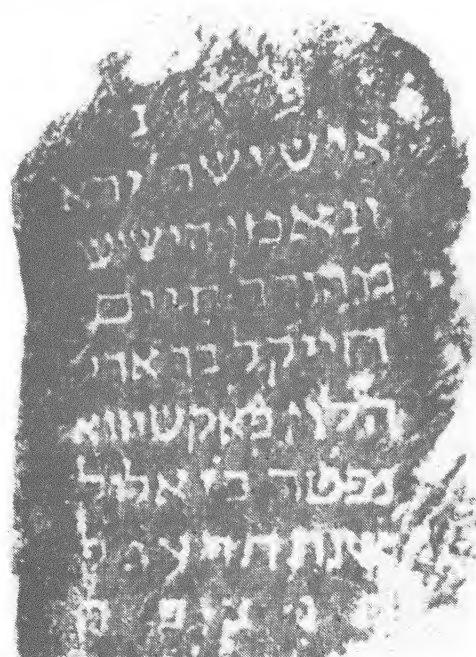 פ נ
איש ישר ירא
ונאמן הישיש
מהורר חיים
חייקל בר ארי
הלוי פאקשיווא
נפטר בי אלול
שנת
ת נ צ ב ה